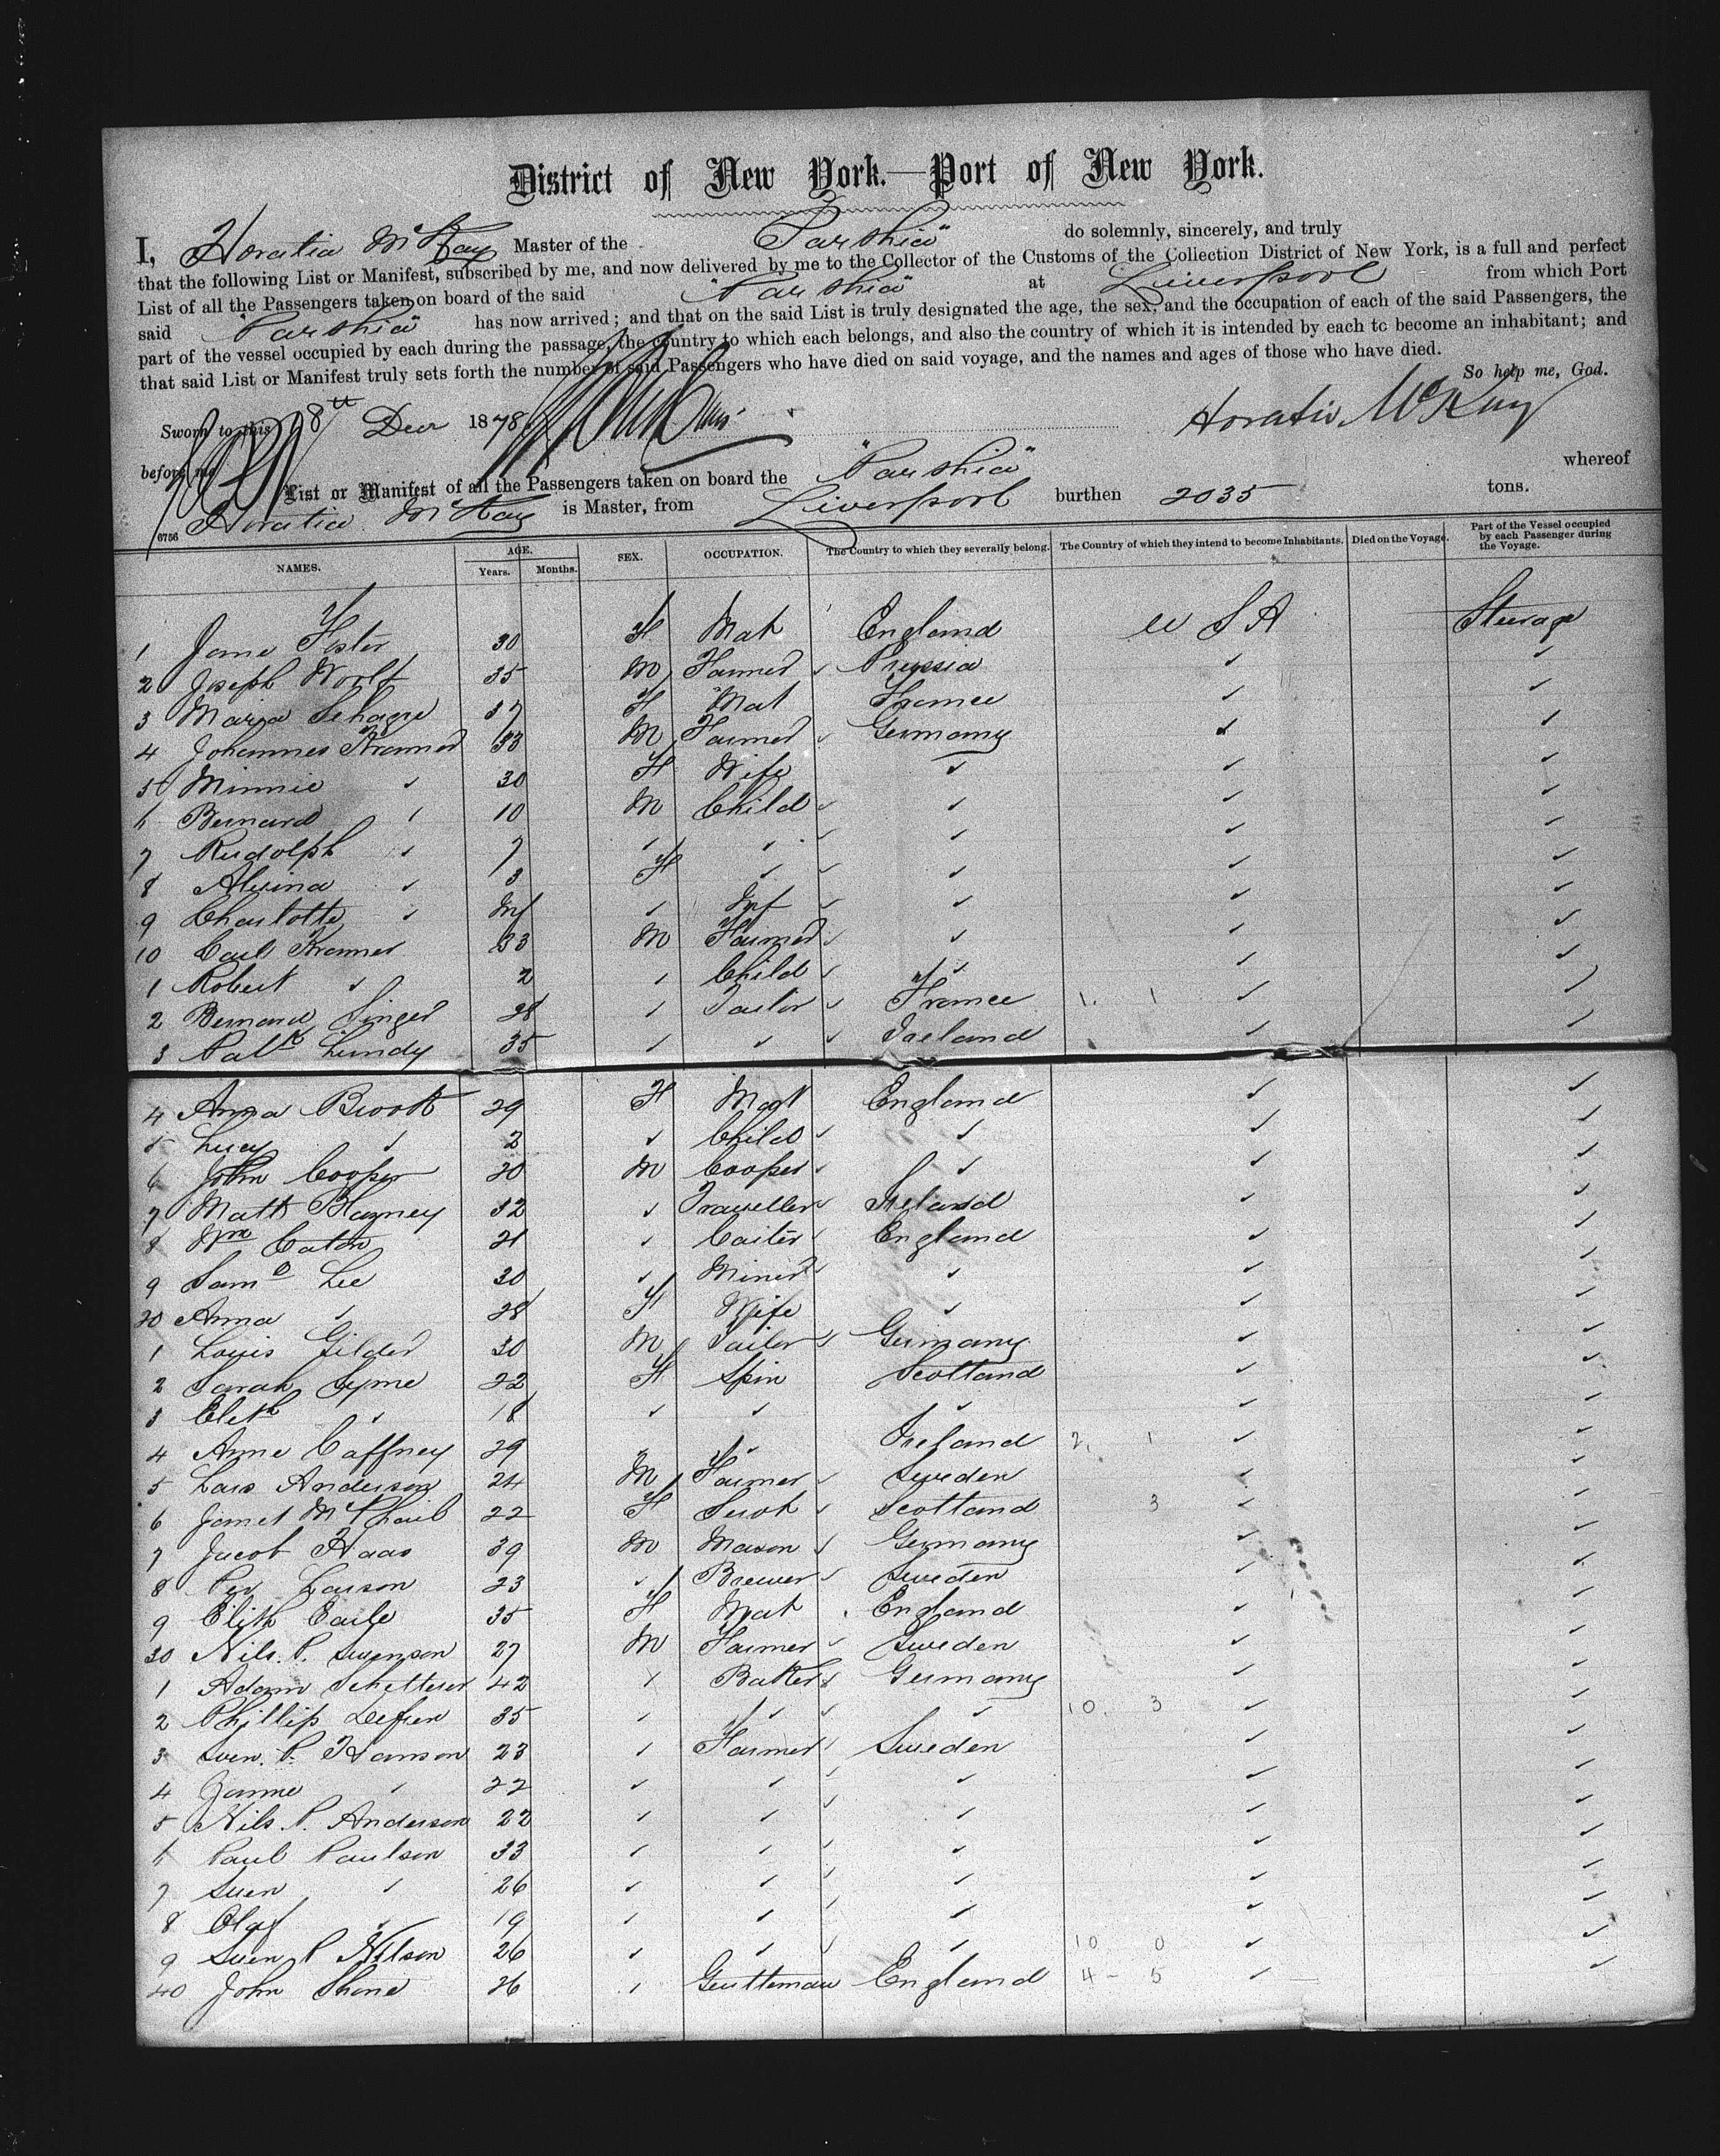 District of New York.—Port of New York.
I, Horatio McKay Master of the "Parthia" do solemnly, sincerely, and truly
that the following List or Manifest, subscribed by me, and now delivered by me to the Collector of the Customs of the Collection District of New York, is a full and perfect
List of all the Passengers taken on board of the said "Parthia" at Liverpool from which Port
said "Parthia" has now arrived; and that on the said List is truly designated the age, the sex, and the occupation of each of the said Passengers, the
part of the vessel occupied by each during the passage, the country to which each belongs, and also the country of which it is intended by each to become an inhabitant; and
that said List or Manifest truly sets forth the number of said Passengers who have died on said voyage, and the names and ages of those who have died.
So help me, God.
Sworn to this 8th Decr 1878 Horatio McKay
before me
List or Manifest of all the Passengers taken on board the "Parthia" whereof
Horatio McKay is Master, from Liverpool burthen 2035 tons.
6756
NAMES. AGE. Years. Months. SEX. OCCUPATION. The Country to which they severally belong. The Country of which they intend to become Inhabitants. Died on the Voyage. Part of the Vessel occupied by each Passenger during the Voyage.
1 Jane Foster 30 F Mat England U S A Steerage
2 Joseph Woolf 35 M Farmer ✓ Prussia ✓ ✓
3 Maria 37 F Mat France ✓ ✓
4 Johannes Kramer 33 M Farmer ✓ Germany ✓ ✓
5 Minnie ✓ 30 F Wife ✓ ✓ ✓
6 Bernard ✓ 10 M Child ✓ ✓ ✓ ✓
7 Rudolph ✓ 7 ✓ ✓ ✓ ✓ ✓ ✓
8 Alvina ✓ 3 F ✓ ✓ ✓ ✓ ✓
9 Charlotte ✓ Inf ✓ Inf ✓ ✓ ✓ ✓
10 Carl Kramer 33 M Farmer ✓ ✓ ✓ ✓
1 Robert ✓ 2 ✓ Child ✓ ✓ ✓ ✓
2 Bernard Singer 28 ✓ Tailor ✓ France 1. 1 ✓ ✓
3 Patk Lundy 35 ✓ ✓ ✓ Ireland ✓ ✓
4 Anna Brook 29 F Mat England ✓ ✓
5 Lucy ✓ 2 ✓ Child ✓ ✓ ✓ ✓
6 John Cooper 20 M Cooper ✓ ✓ ✓ ✓
7 Matt 32 ✓ Traveller ✓ Ireland ✓ ✓
8 Wm Caton 21 ✓ Carter ✓ England ✓ ✓
9 Saml Lee 30 ✓ Miner ✓ ✓ ✓ ✓
20 Anna ✓ 28 F Wife ✓ ✓ ✓
1 Louis Gilder 30 M Tailor ✓ Germany ✓ ✓
2 Sarah Syme 22 F Spin Scotland ✓ ✓
3 Elizth ✓ 18 ✓ ✓ ✓ ✓ ✓
4 Anne Caffney 29 ✓ ✓ Ireland 2. 1 ✓ ✓
5 Lars Anderson 24 M Farmer ✓ Sweden ✓ ✓
6 Janet McPhail 22 F Servt ✓ Scotland 3 ✓ ✓
7 Jacob Haas 39 M Mason ✓ Germany ✓ ✓
8 Per Larson 23 ✓ Brewer ✓ Sweden ✓ ✓
9 Elizth Earle 35 F Mat England ✓ ✓
30 Nils. P. Swenson 27 M Farmer ✓ Sweden ✓ ✓
1 Adam 42 ✓ Baker ✓ Germany ✓ ✓
2 Phillip 35 ✓ ✓ ✓ ✓ 10. 3 ✓ ✓
3 Sven. P. Hanson 23 ✓ Farmer ✓ Sweden ✓ ✓
4 Janne ✓ 22 ✓ ✓ ✓ ✓ ✓ ✓
5 Nils. P. Anderson 22 ✓ ✓ ✓ ✓ ✓ ✓
6 Paul Paulson 33 ✓ ✓ ✓ ✓ ✓ ✓
7 Sven ✓ 26 ✓ ✓ ✓ ✓ ✓ ✓
8 Olaf ✓ 19 ✓ ✓ ✓ ✓ ✓ ✓
9 Sven P Nilson 26 ✓ ✓ ✓ ✓ 10 0 ✓ ✓
40 John Shone 26 ✓ Gentleman England 4 - 5 ✓ ✓